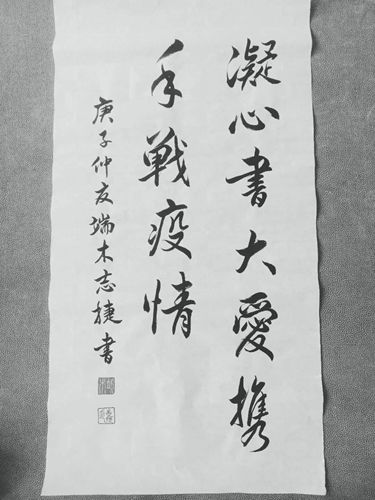 凝心書大愛携
手戰疫情
庚子仲友端木志捷書